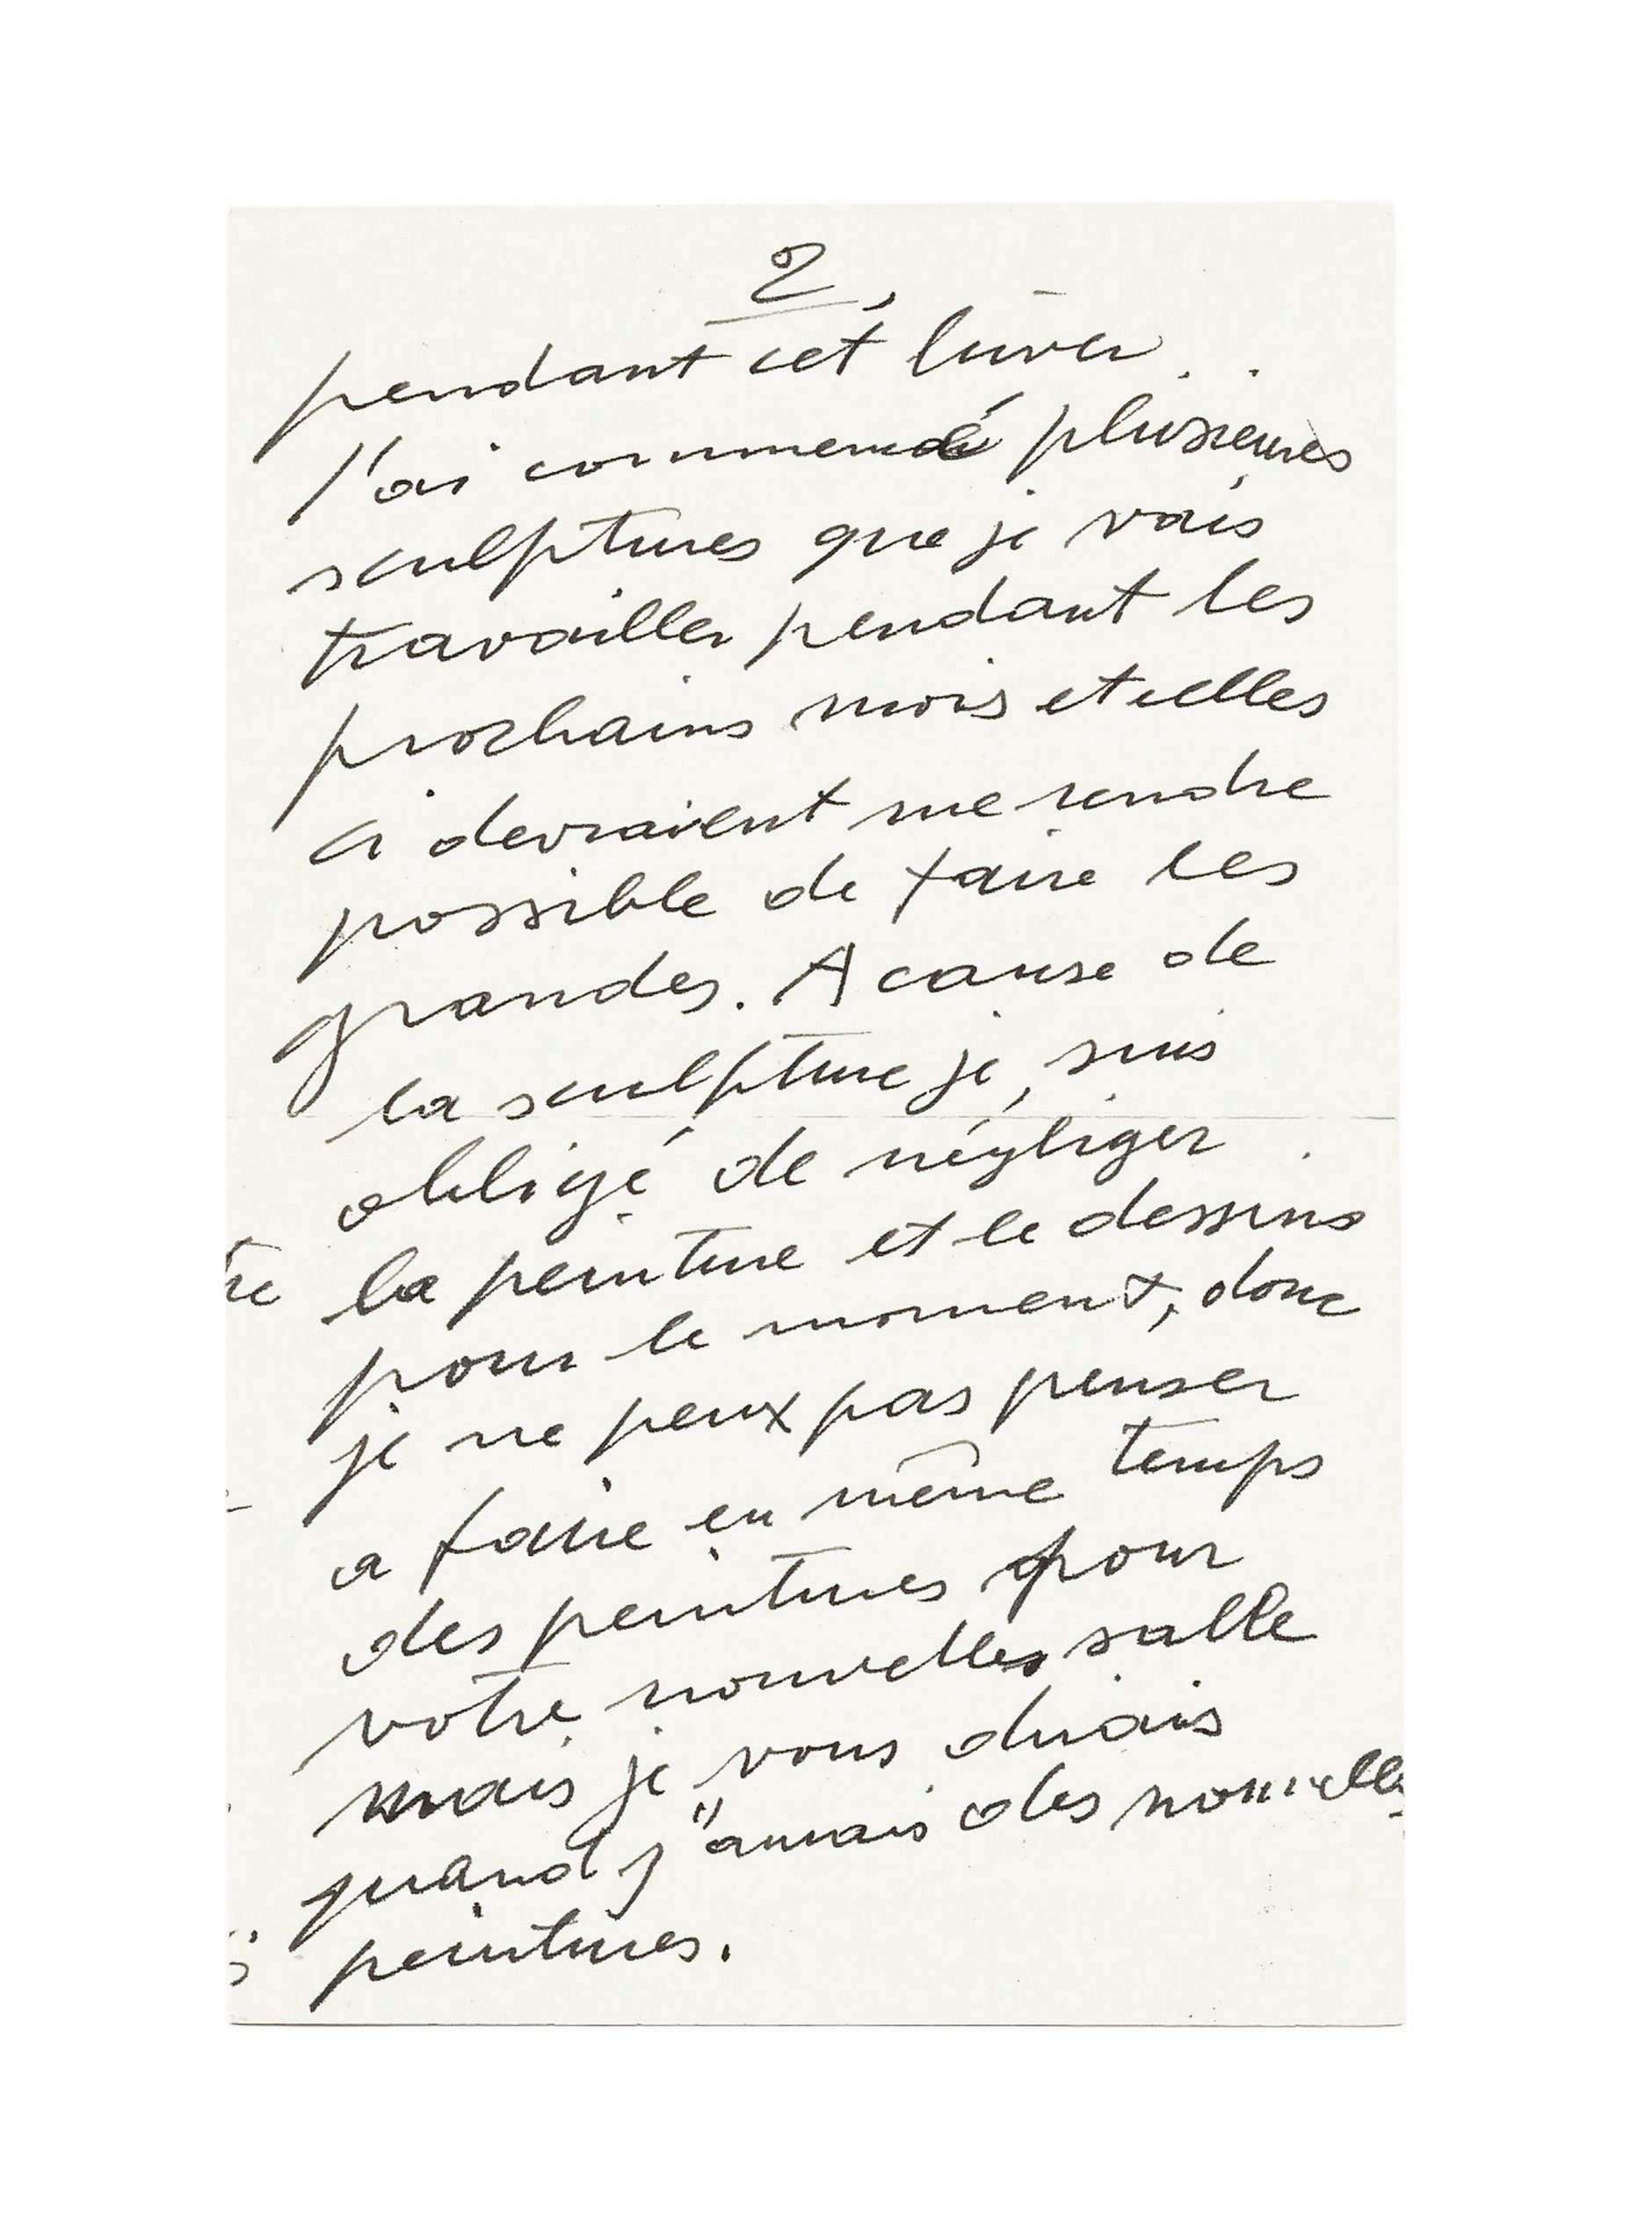 2,
pendant cet hiver.
J'ai commencé plusieures
sculptures que je vais
travailler pendant les
prochains mois et celles
ci devraient me rendre
possible de faire les
grandes. A cause de
la sculpture je suis
obligé de négliger
la peinture et le dessins
pour le moment, donc
je ne peux pas penser
a faire en même temps
des peintures pour
votre nouvelles salle
mais je vous dirais
quand j'aurais des nouvelles
peintures.